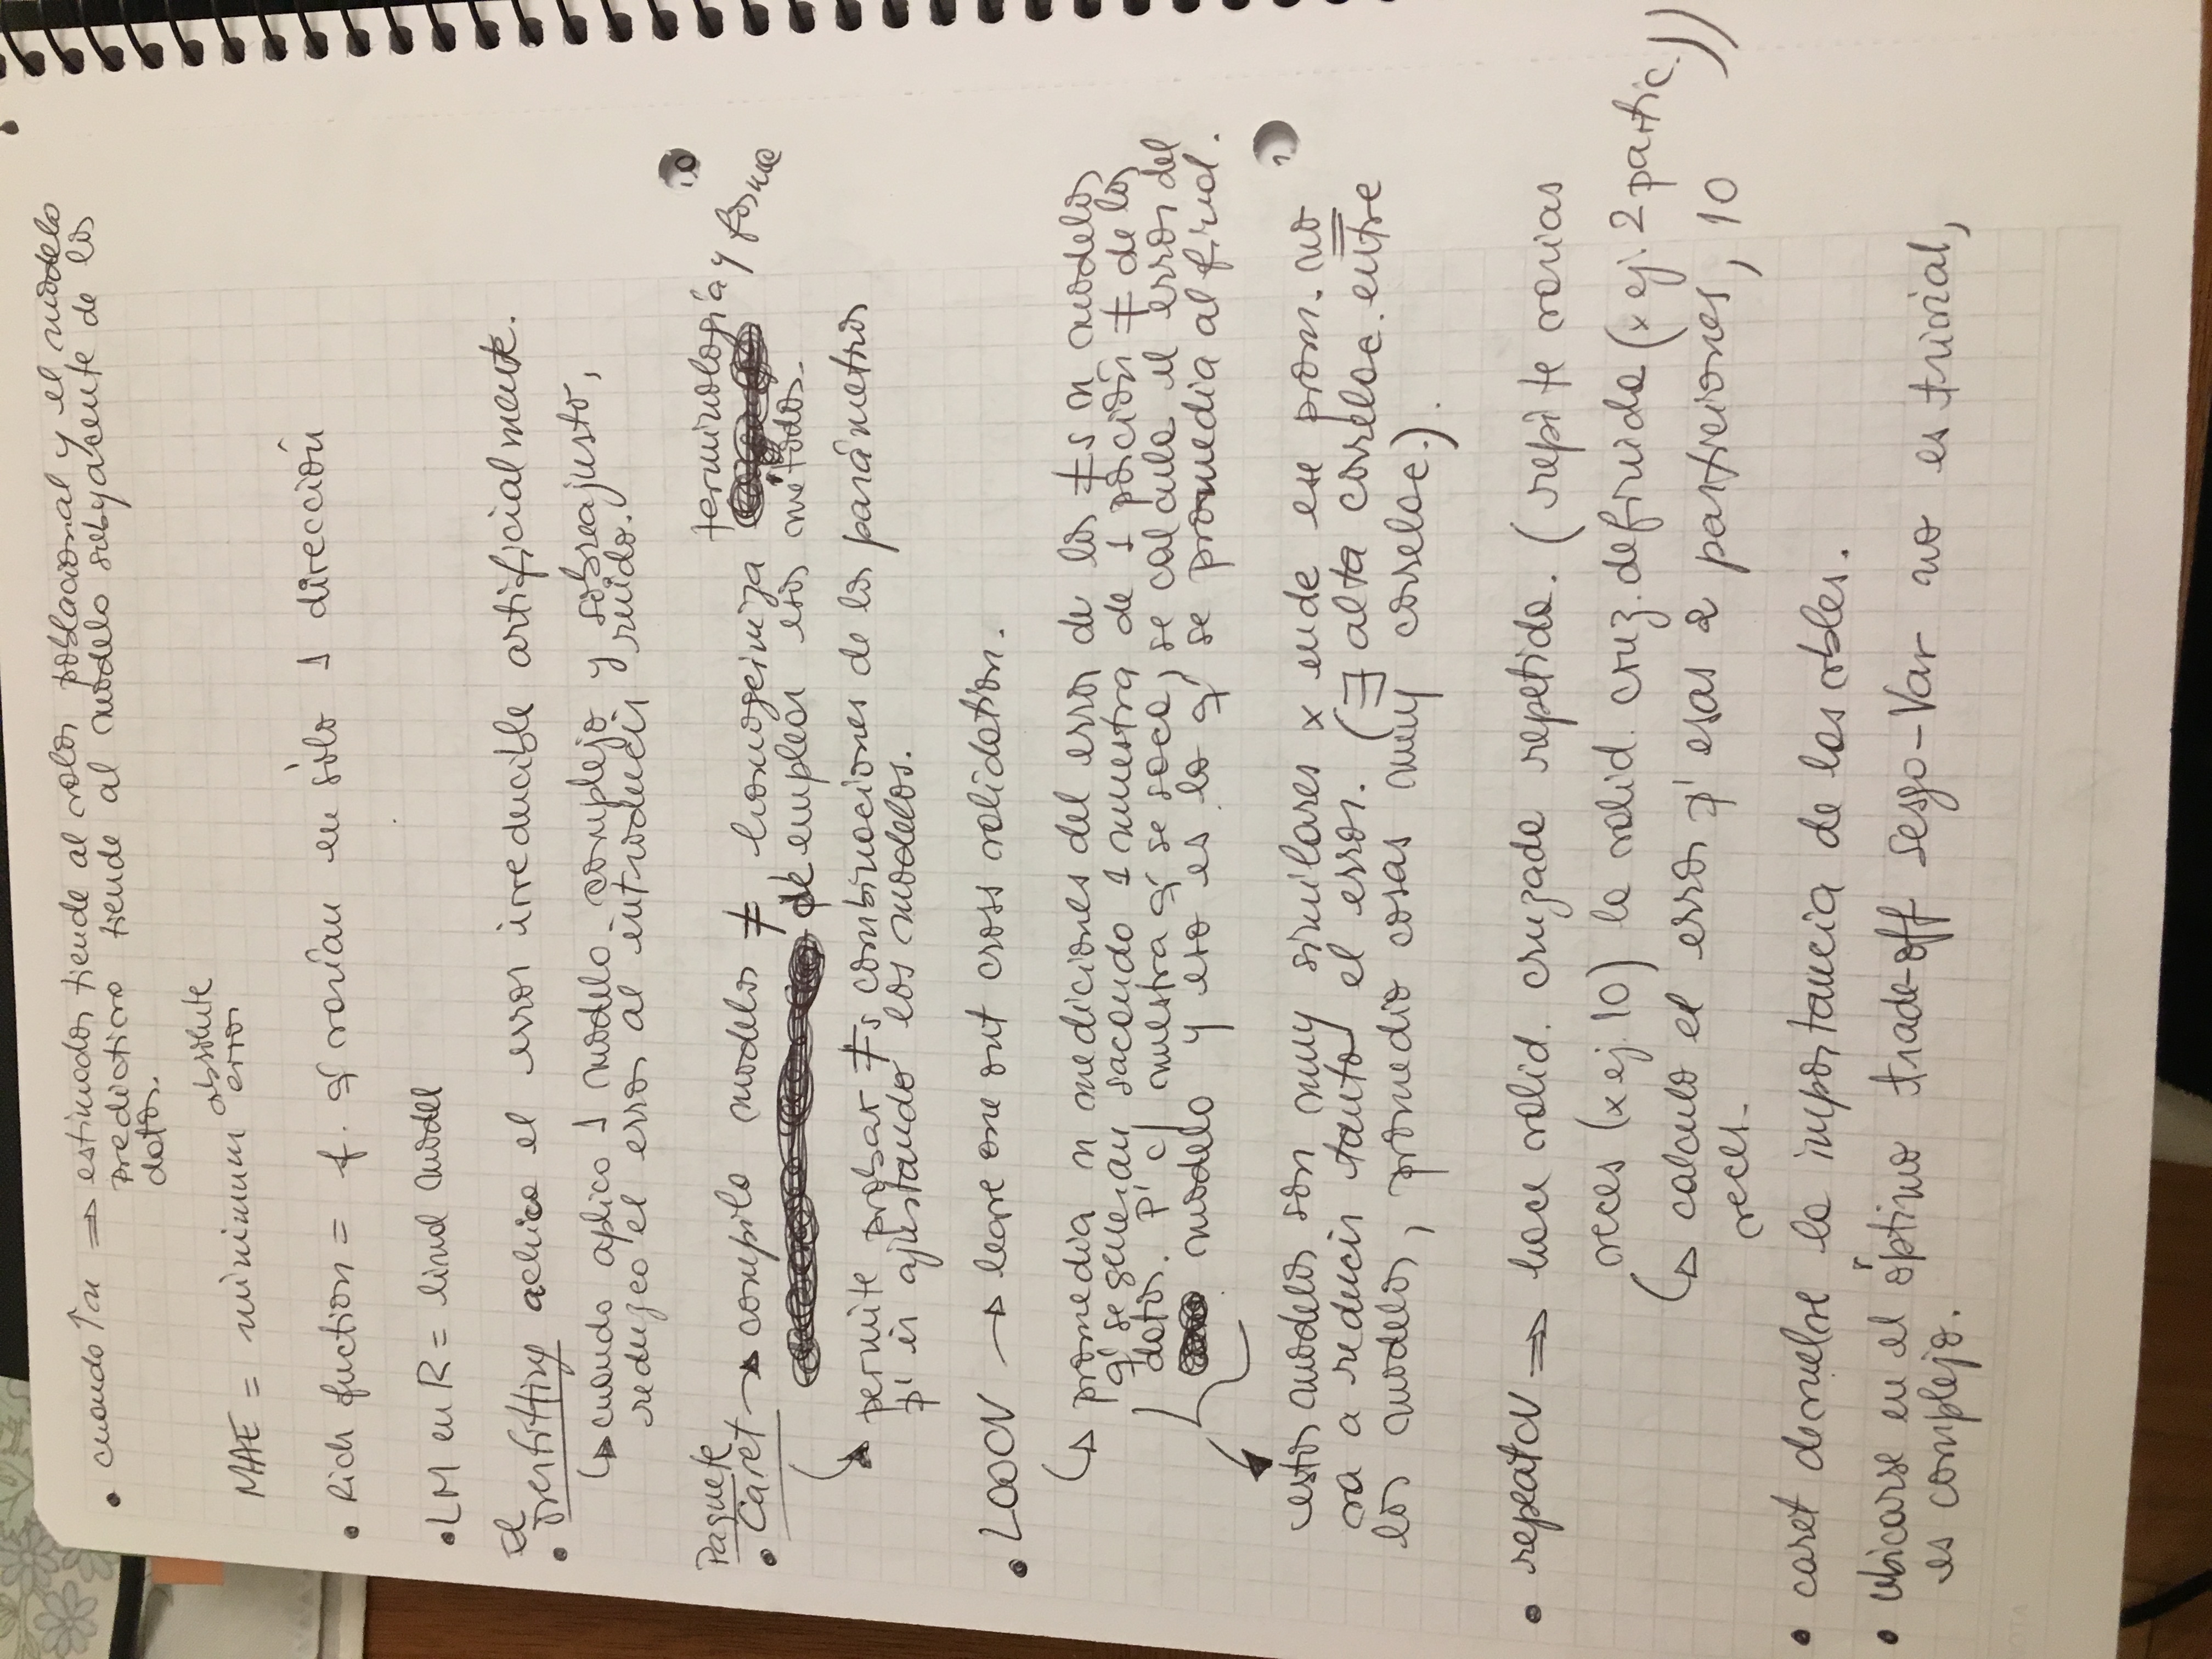 • cuando ↑n ⇒ estimador tiende al valor poblacional y el modelo
predictivo tiende al modelo subyacente de los
datos.
MAE = minimum absolute error
• Rich fuction = f. q' varían en sólo 1 dirección
• LM en R = lineal model
• El overfitting achica el error irreducible artificialmente.
↳ cuando aplico 1 modelo complejo y sobreajusto,
reduzco el error al introducir ruido.
Paquete
• Caret → compila modelos ≠, homogeiniza terminología y forma
de emplear esos métodos.
↳ permite probar ≠s combinaciones de los parámetros
p' ir ajustando los modelos.
• LOOCV → leave one out cross validation.
↳ promedia n mediciones del error de los ≠s n modelos
q' se generan sacando 1 muestra de 1 porción ≠ de los
datos. P' c/ muestra q' se saca, se calcula el error del
modelo y eso es lo q' se promedia al final.
estos modelos son muy similares x ende ese prom. no
va a reducir tanto el error. (∃ alta correlac. entre
los modelos, promedio cosas muy correlac.).
• repeatCV ⇒ hace valid. cruzada repetida. (repite varias
veces (x ej. 10) la valid. cruz. definida (x ej. 2 partic.))
↳ calculo el error p' esas 2 particiones, 10
veces.
• caret devuelve la importancia de las vbles.
• Ubicarse en el óptimo trade-off Sesgo-Var no es trivial,
es complejo.